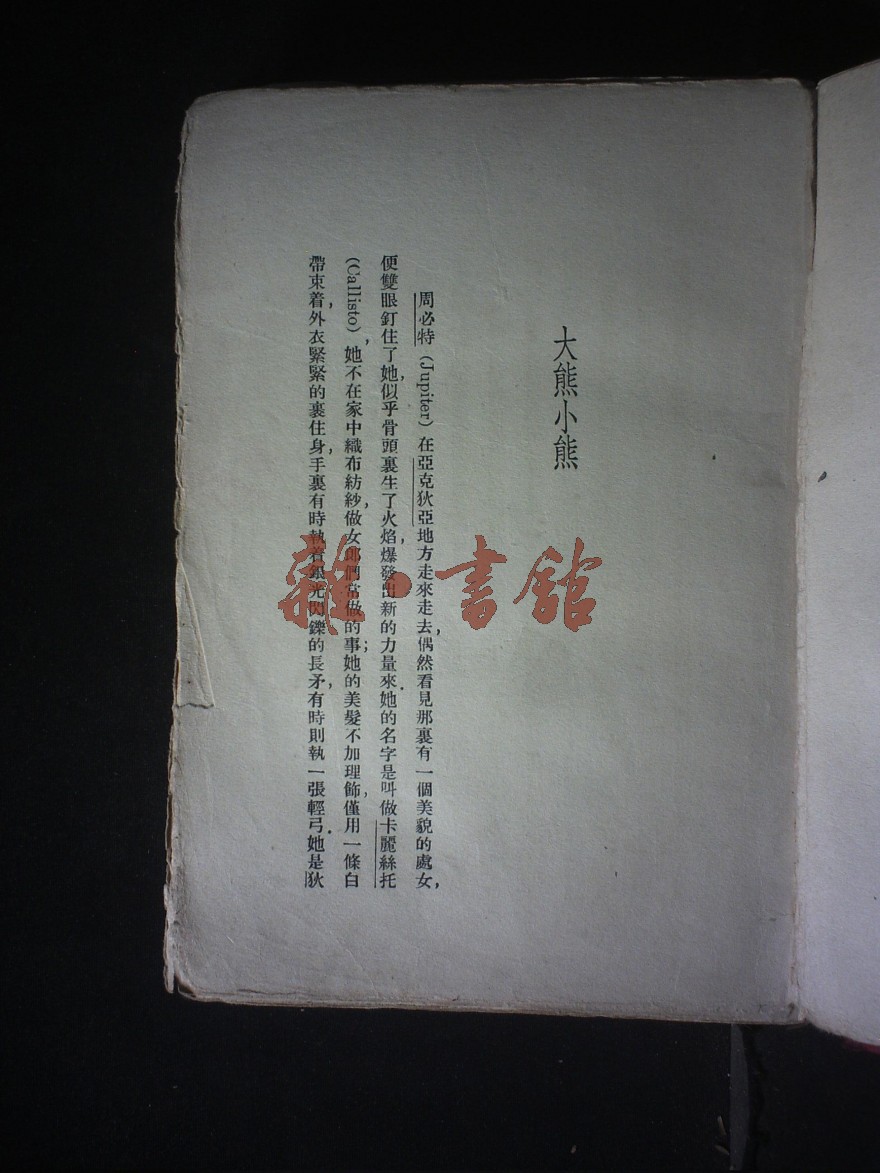 大熊小熊
周必特(Jupiter)在亞克狄亞地方走來走去,偶然看見那裏有一個美貌的處女,
便雙眼釘住了她,似乎骨頭裏生了火焰,爆發出新的力量來.她的名字是叫做卡麗絲托
(Callisto),她不在家中織布紡紗,做女郎們常做的事;她的美髮不加理飾,僅用一條白
帶束着,外衣緊緊的裹住身,手裏有時執着銀光閃鑠的長矛,有時則執一張輕弓.她是狄
雜·書館